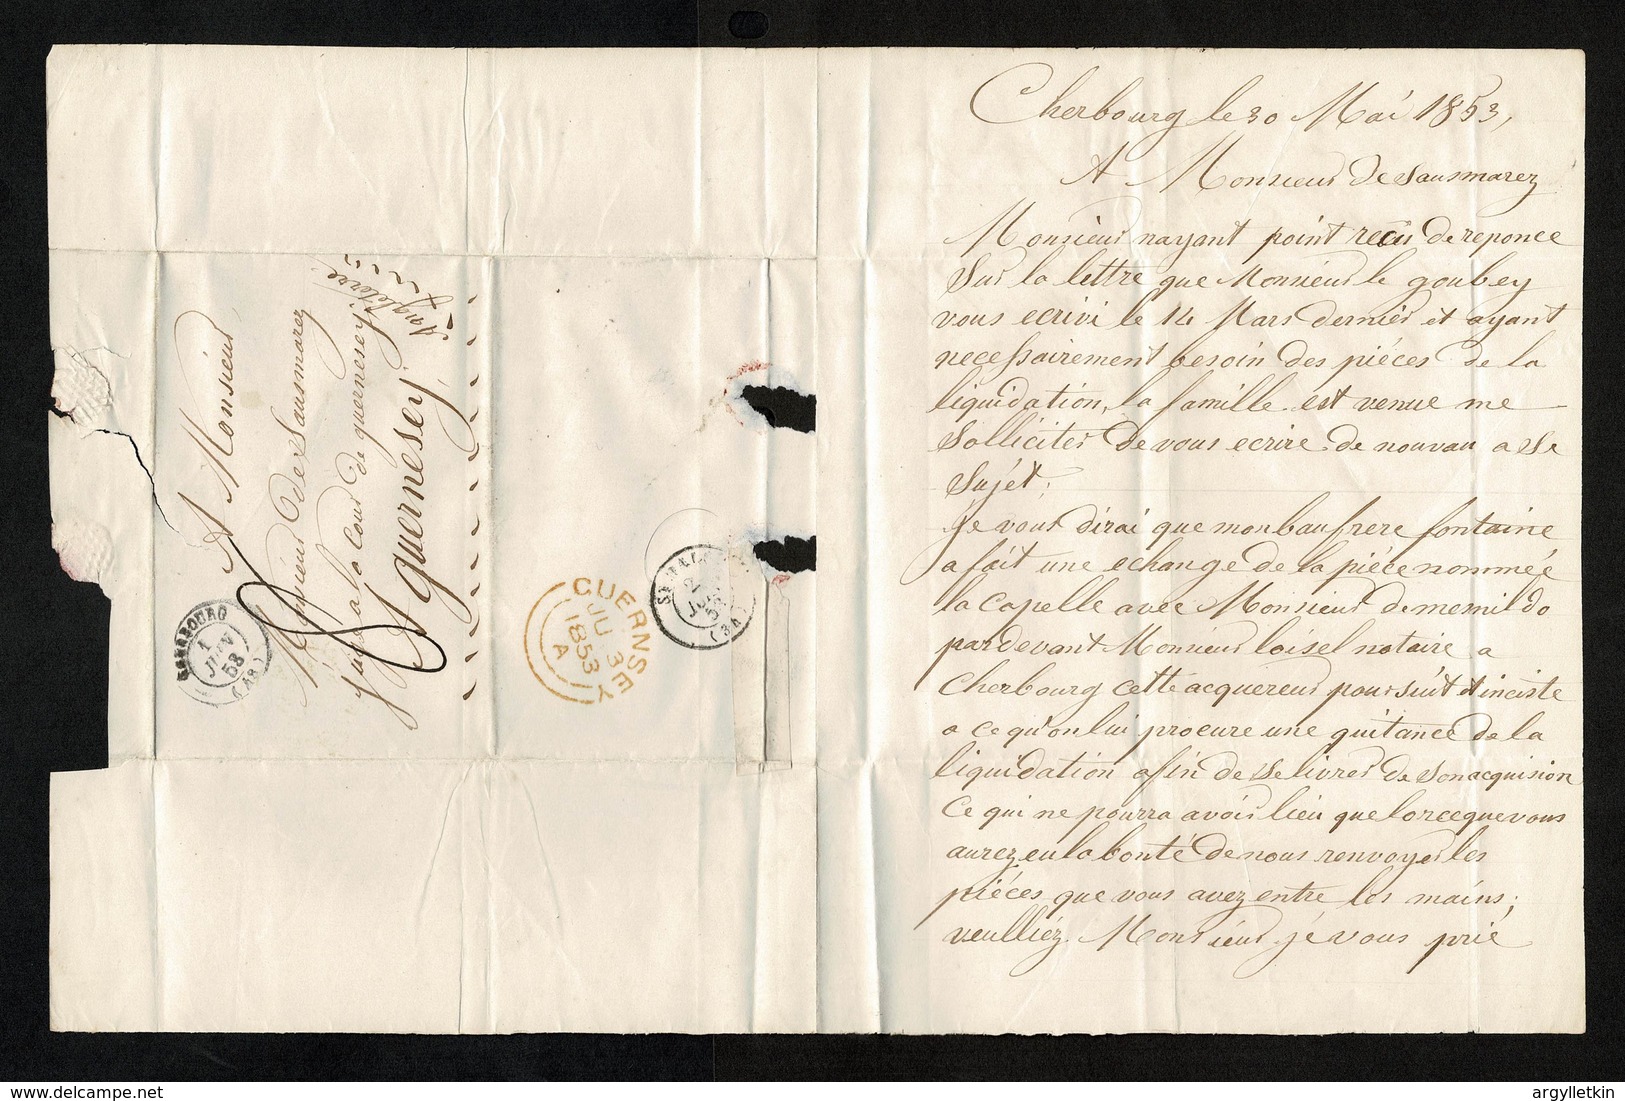 Cherbourg le 30 Mai 1853,
A Monsieur De Sausmarez
Monsieur nayant point recus de reponce
Sur la lettre que Monsieur le goubey
vous ecrivi le 14 Mars dernier et ayant
necessairement besoin des piéces de la
liquidation, la famille est venue me
Solliciter de vous ecrire de nouvau a Se
Sujét;
Je vous dirai que mon baufrere fontaine
a fait une echange de la piéce nommée
la Capelle avec Monsieur demenildo
par devant Monsieur loisel notaire a
Cherbourg cette acquereur poursuit et inciste
a ce qu'on lui procure une quitance de la
liquidation afin de Se livrer de Son acquision
Ce qui ne pourra avoir lieu que lorceque vous
aurez eu la bonté de nous renvoyer les
piéces que vous avez entre les mains;
veulliéz Monsieur je vous prié
A Monsieur,
Monsieur de Sausmarez
juge a la Cour de guernesey
A guernesey,
Angleterre
8
CHERBOURG
1
JUIN
53
(48)
GUERNSEY
JU 3
1853
A
ST MALO
2
JUIN
53
(34)
argylletkin